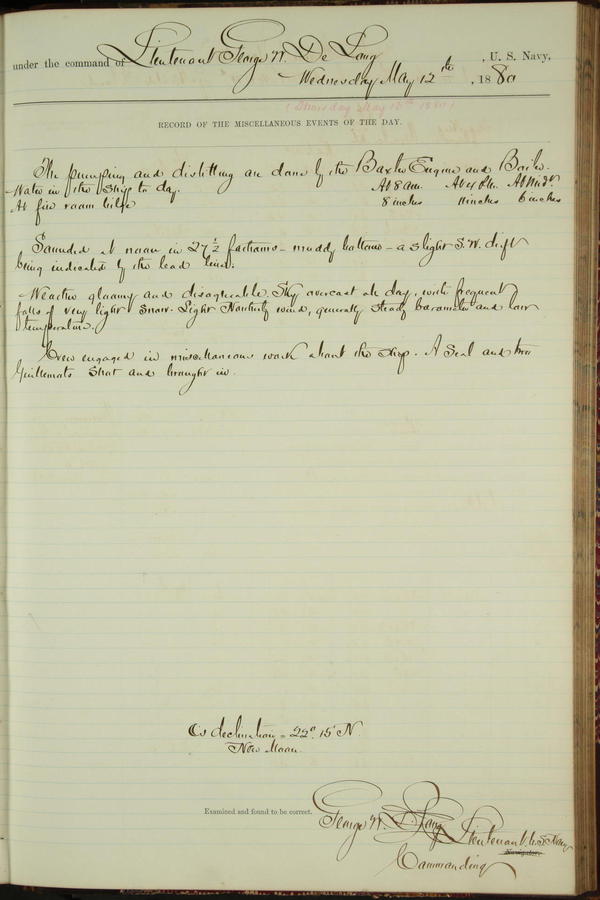 under the command of Lieutenant George W. De Long , U. S. Navy,
Wednesday May 12th , 1880
(Thursday May 13th 1880)
RECORD OF THE MISCELLANEOUS EVENTS OF THE DAY.
The pumping and distilling are done by the Baxter Engine and Boiler.
Water in the ship to day. At 8 am. At 4 P.m. At Mid't.
At fire room bilge 8 inches 11 inches 6 inches
Sounded at noon in 27 1/2 fathoms - muddy bottom - a slight S.W. drift
being indicated by the lead line.
Weather gloomy and disagreeable. Sky overcast all day, with frequent
falls of very light snow. Light Northerly wind, generally steady barometer and low
temperature.
Crew engaged in miscellaneous work about the ship. A Seal and two
Guillemots shot and brought in.
declination = 22° 15' N.
New Moon.
Examined and found to be correct.
George W. De Long Lieutenant U.S. Navy
Navigator.
Commanding